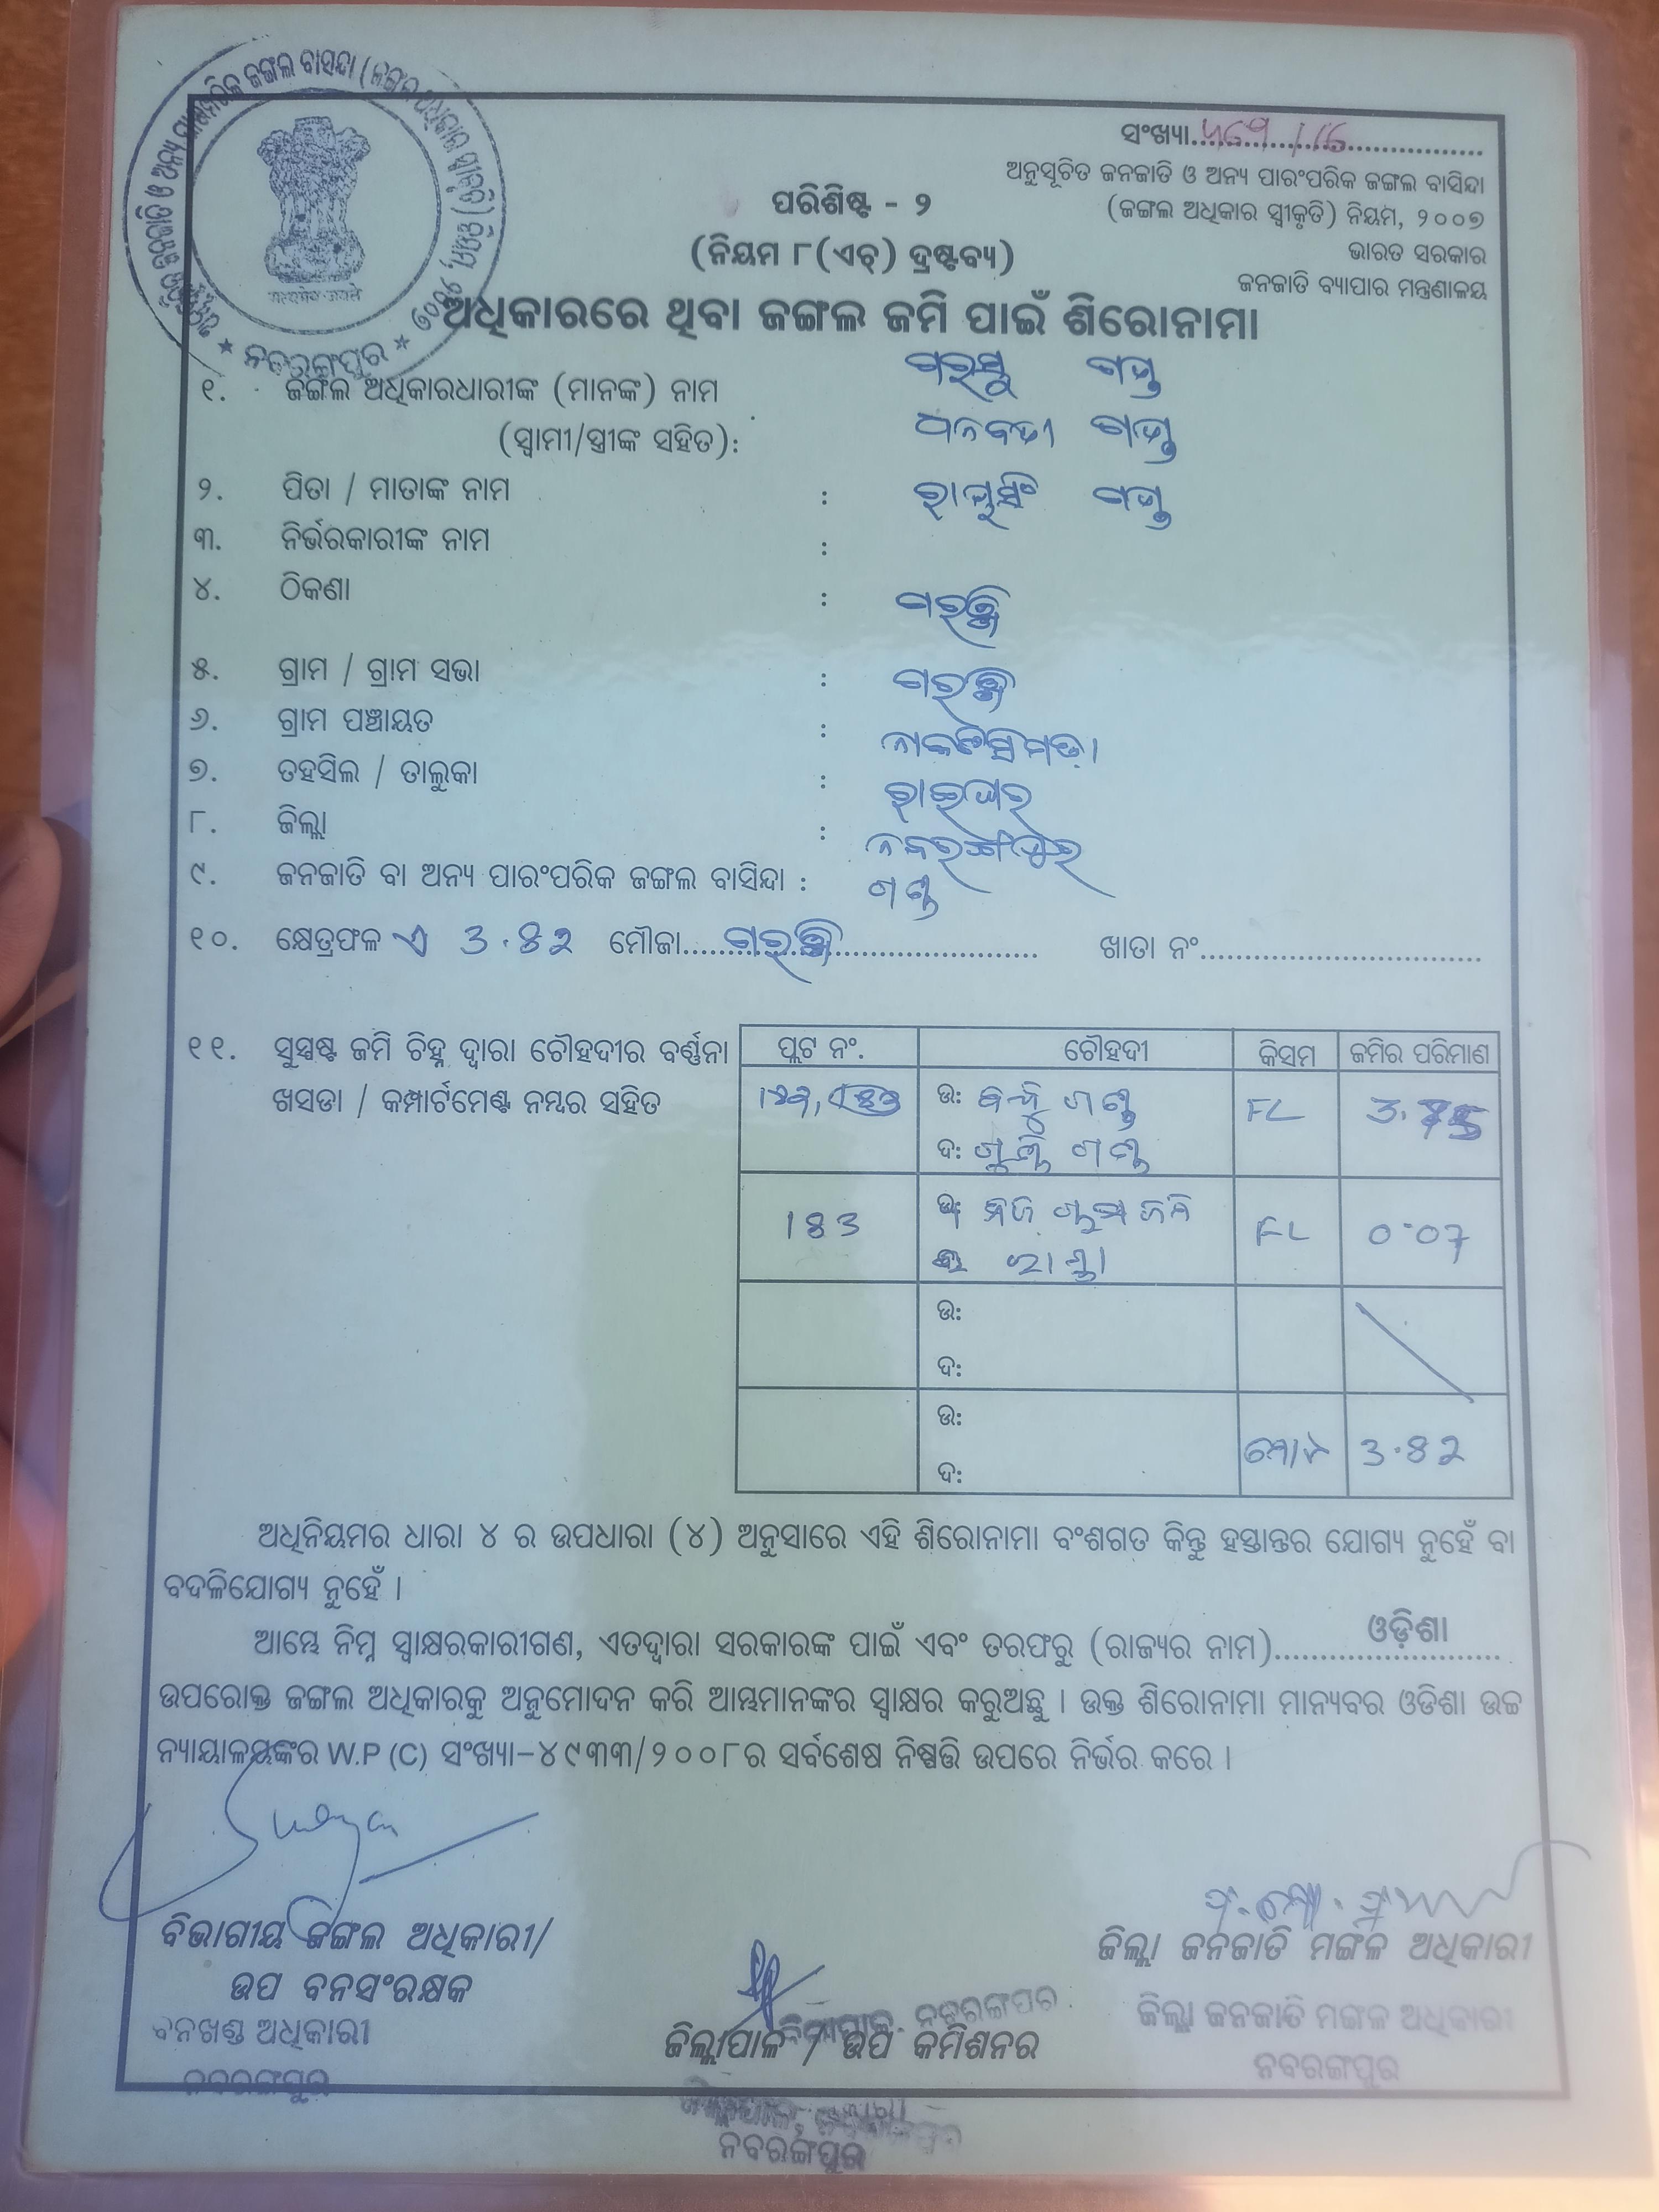 ଅନୁସୂଚିତ ଜନଜାତି ଓ ଅନ୍ୟ ପାରଂପରିକ ଜଙ୍ଗଲ ବାସିନ୍ଦା (ଜଙ୍ଗଲ ଅଧିକାର ସ୍ୱୀକୃତି) ନିୟମ, ୨୦୦୭
ନବରଙ୍ଗପୁର
ସଂଖ୍ୟା
ଅନୁସୂଚିତ ଜନଜାତି ଓ ଅନ୍ୟ ପାରଂପରିକ ଜଙ୍ଗଲ ବାସିନ୍ଦା
(ଜଙ୍ଗଲ ଅଧିକାର ସ୍ୱୀକୃତି) ନିୟମ, ୨୦୦୭
ଭାରତ ସରକାର
ଜନଜାତି ବ୍ୟାପାର ମନ୍ତ୍ରଣାଳୟ
ପରିଶିଷ୍ଟ - ୨
(ନିୟମ ୮(ଏଚ୍) ଦ୍ରଷ୍ଟବ୍ୟ)
ଅଧିକାରରେ ଥିବା ଜଙ୍ଗଲ ଜମି ପାଇଁ ଶିରୋନାମା
୧. ଜଙ୍ଗଲ ଅଧିକାରଧାରୀଙ୍କ (ମାନଙ୍କ) ନାମ ଗଣ୍ଡ
(ସ୍ୱାମୀ/ସ୍ତ୍ରୀଙ୍କ ସହିତ): ଧନବତୀ ଗଣ୍ଡ
୨. ପିତା / ମାତାଙ୍କ ନାମ : ଗଣ୍ଡ
୩. ନିର୍ଭରକାରୀଙ୍କ ନାମ :
୪. ଠିକଣା :
୫. ଗ୍ରାମ / ଗ୍ରାମ ସଭା :
୬. ଗ୍ରାମ ପଞ୍ଚାୟତ :
୭. ତହସିଲ / ତାଲୁକା : ରାଇଘର
୮. ଜିଲ୍ଲା : ନବରଙ୍ଗପୁର
୯. ଜନଜାତି ବା ଅନ୍ୟ ପାରଂପରିକ ଜଙ୍ଗଲ ବାସିନ୍ଦା : ଗଣ୍ଡ
୧୦. କ୍ଷେତ୍ରଫଳ ଏ 3.82 ମୌଜା ଖାତା ନଂ
୧୧. ସୁସ୍ପଷ୍ଟ ଜମି ଚିହ୍ନ ଦ୍ୱାରା ଚୌହଦୀର ବର୍ଣ୍ଣନା
ଖସଡା / କମ୍ପାର୍ଟମେଣ୍ଟ ନମ୍ବର ସହିତ
ପ୍ଲଟ ନଂ. ଚୌହଦୀ କିସମ ଜମିର ପରିମାଣ
ଉ: ଗଣ୍ଡ FL 3.75
ଦ: ଗଣ୍ଡ
183 FL 0.07
ରାସ୍ତା
ଉ:
ଦ:
ଉ: ମୋଟ 3.82
ଦ:
ଅଧିନିୟମର ଧାରା ୪ ର ଉପଧାରା (୪) ଅନୁସାରେ ଏହି ଶିରୋନାମା ବଂଶଗତ କିନ୍ତୁ ହସ୍ତାନ୍ତର ଯୋଗ୍ୟ ନୁହେଁ ବା
ବଦଳିଯୋଗ୍ୟ ନୁହେଁ ।
ଆମ୍ଭେ ନିମ୍ନ ସ୍ୱାକ୍ଷରକାରୀଗଣ, ଏତଦ୍ୱାରା ସରକାରଙ୍କ ପାଇଁ ଏବଂ ତରଫରୁ (ରାଜ୍ୟର ନାମ) ଓଡ଼ିଶା
ଉପରୋକ୍ତ ଜଙ୍ଗଲ ଅଧିକାରକୁ ଅନୁମୋଦନ କରି ଆମ୍ଭମାନଙ୍କର ସ୍ୱାକ୍ଷର କରୁଅଛୁ । ଉକ୍ତ ଶିରୋନାମା ମାନ୍ୟବର ଓଡିଶା ଉଚ୍ଚ
ନ୍ୟାୟାଳୟଙ୍କର W.P (C) ସଂଖ୍ୟା-୪୯୩୩/୨୦୦୮ର ସର୍ବଶେଷ ନିଷ୍ପତ୍ତି ଉପରେ ନିର୍ଭର କରେ ।
ବିଭାଗୀୟ ଜଙ୍ଗଲ ଅଧିକାରୀ/
ଉପ ବନସଂରକ୍ଷକ
ବନଖଣ୍ଡ ଅଧିକାରୀ
ନବରଙ୍ଗପୁର
ଜିଲ୍ଲାପାଳ, ନବରଙ୍ଗପୁର
ଜିଲ୍ଲାପାଳ / ଉପ କମିଶନର
ନବରଙ୍ଗପୁର
ଜିଲ୍ଲା ଜନଜାତି ମଙ୍ଗଳ ଅଧିକାରୀ
ଜିଲ୍ଲା ଜନଜାତି ମଙ୍ଗଳ ଅଧିକାରୀ
ନବରଙ୍ଗପୁର